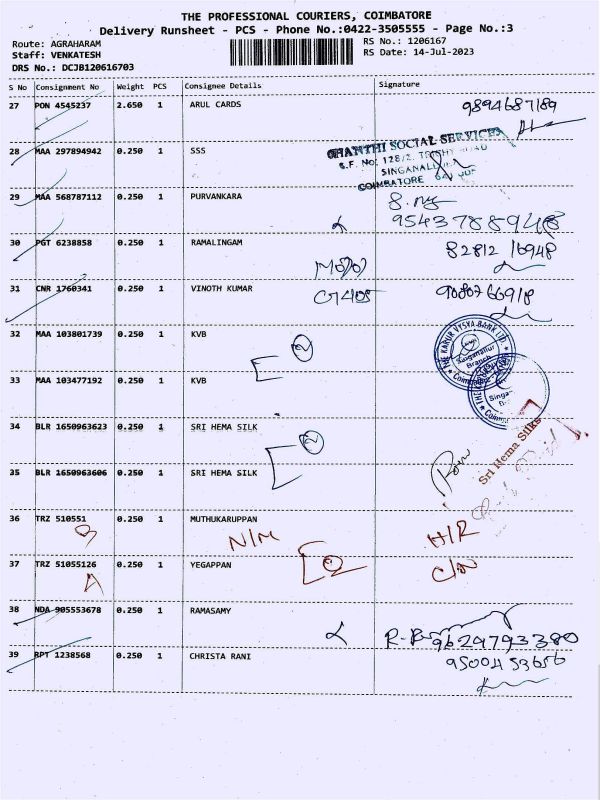 THE PROFESSIONAL COURIERS, COIMBATORE
Delivery Runsheet - PCS - Phone No.:0422-3505555 - Page No.:3
Route: AGRAHARAM
Staff: VENKATESH
DRS No.: DCJB120616703
RS No.: 1206167
RS Date: 14-Jul-2023
S No Consignment No Weight PCS Consignee Details Signature
27 PON 4545237 2.650 1 ARUL CARDS 9894687189
28 MAA 297894942 0.250 1 SSS
SOCIAL SERVICES
S.F. No: 128/2,
COIMBATORE
29 MAA 568787112 0.250 1 PURVANKARA
30 PGT 6238858 0.250 1 RAMALINGAM 82812 16948
31 CNR 1760341 0.250 1 VINOTH KUMAR
32 MAA 103801739 0.250 1 KVB 2
THE KARUR VYSYA BANK LTD.
Singanallur
Branch
33 MAA 103477192 0.250 1 KVB
34 BLR 1650963623 0.250 1 SRI HEMA SILK 2
Sri Hema Silks
35 BLR 1650963606 0.250 1 SRI HEMA SILK
36 TRZ 510551 0.250 1 MUTHUKARUPPAN
N/M H/R
37 TRZ 51055126 0.250 1 YEGAPPAN 2 C/N
A
38 NDA 905553678 0.250 1 RAMASAMY
9629793380
39 RPT 1238568 0.250 1 CHRISTA RANI 9500453656